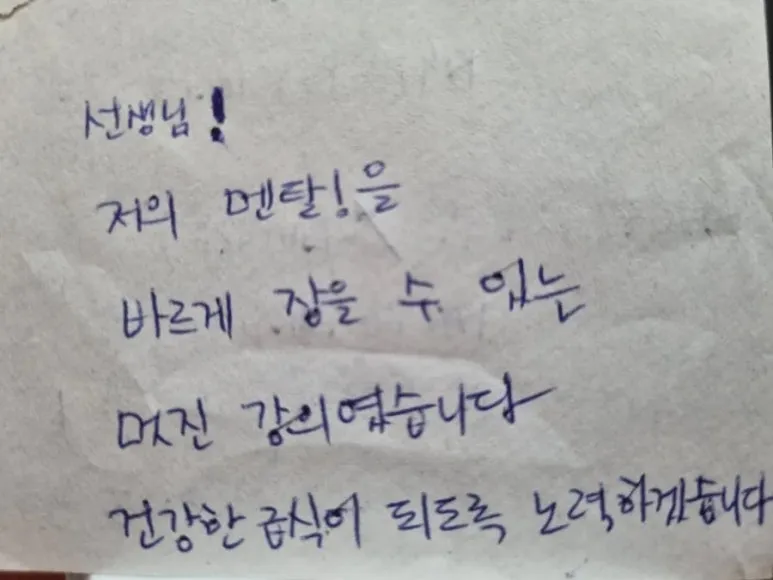 선생님!
저의 멘탈!을
바르게 장을 수 있는
멋진 강의였습니다
건강한 급식이 되도록 노력하겠습니다